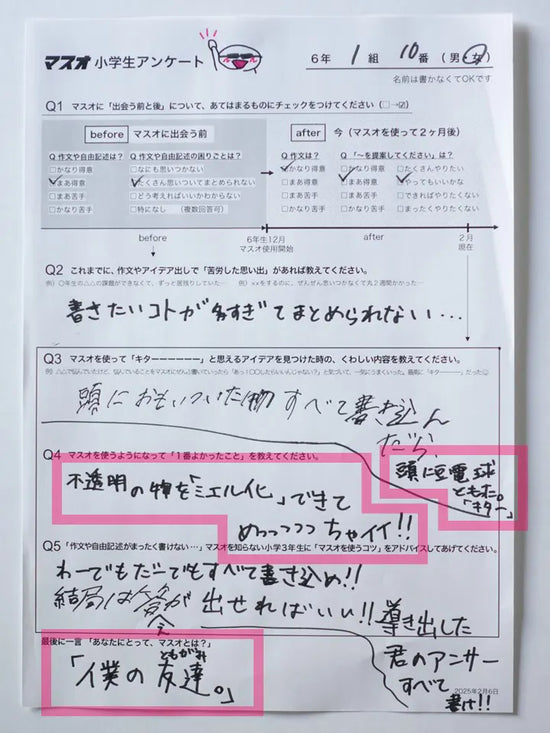 マスオ 小学生アンケート
6年 1 組 10 番 (男・女)
名前は書かなくてOKです
Q1 マスオに「出会う前と後」について、あてはまるものにチェックをつけてください(□→☑)
before マスオに出会う前
after 今(マスオを使って2ヶ月後)
Q 作文や自由記述は? Q 作文や自由記述の困りごとは?
Q 作文は? Q 「〜を提案してください」は?
□かなり得意 □なにも思いつかない
□かなり得意 □かなり得意 □たくさんやりたい
□まあ得意 □たくさん思いついてまとめられない
□まあ得意 □まあ得意 □やってもいいかな
□まあ苦手 □どう考えればいいかわからない
□まあ苦手 □まあ苦手 □できればやりたくない
□かなり苦手 □特になし (複数回答可)
□かなり苦手 □かなり苦手 □まったくやりたくない
before
6年生12月
マスオ使用開始
after
2月
現在
Q2 これまでに、作文やアイデア出しで「苦労した思い出」があれば教えてください。
例)〇年生の△△の課題ができなくて、ずっと居残りしていた… 例)××をするのに、ぜんぜん思いつかなくて丸2週間かかった…
書きたいコトが多すぎてまとめられない…
Q3 マスオを使って「キターーーーーー」と思えるアイデアを見つけた時の、くわしい内容を教えてください。
頭におもいついた物すべて書き込ん
だら、
頭に豆電球
ともた。
「キター」
Q4 マスオを使うようになって「1番よかったこと」を教えてください。
不透明の物を「ミエル化」できて
めっっっっっちゃイイ!!
Q5 「作文や自由記述がまったく書けない…」マスオを知らない小学3年生に「マスオを使うコツ」をアドバイスしてあげてください。
わーでもだーでもすべて書き込め!!
結局は答えが出せればいい!! 導き出した
君のアンサー
すべて
書け!!
最後に一言「あなたにとって、マスオとは?」
ともがみ
「僕の友達。」
2025年2月6日